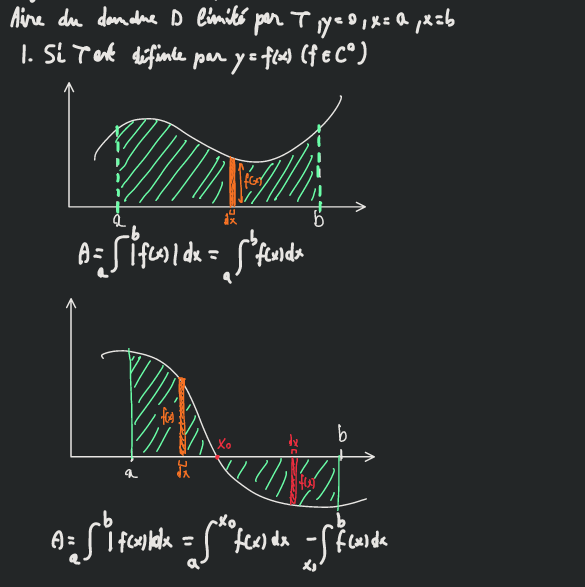 Aire du domaine D limité par T, y=0, x=a, x=b
1. Si T est définie par y = f(x) (f ∈ C⁰)
f(x)
a
dx
b
A = ∫_a^b |f(x)| dx = ∫_a^b f(x) dx
dx
b
x₀
f(x)
f(x)
a
dx
A = ∫_a^b |f(x)| dx = ∫_a^{x₀} f(x) dx - ∫_{x₀}^b f(x) dx